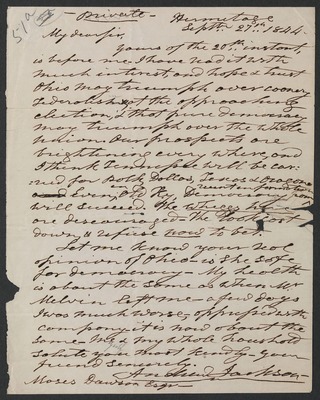 — Private —
Hermitage
Septbr 27th 1844—
My dear sir,
yours of the 20th instant,
is before me, I have read it with
much interest, and hope & trust
Ohio may triumph over coonery
& Federalist at the approaching
election, & that pure democracy
may triumph over the whole
Union. Our prospects are
brightening every where, and
I think Tennessee will be car
ried for Polk, Dallas, Texas & Oregon
and even, Ky. Democracy
will succeed. The whigs
are discouraged the
down, & refuse now to bet.
Let me know your real
opinion of Ohio—is she safe
for democracy— My health
is about the same as when Mr
Melvin left me— a few days
I was much worse, oppressed with
company, it is now about the
same— my whole household
salute you most kindly— your
friend sincerely,
Andrew Jackson—
Moses Dawson Esqr—